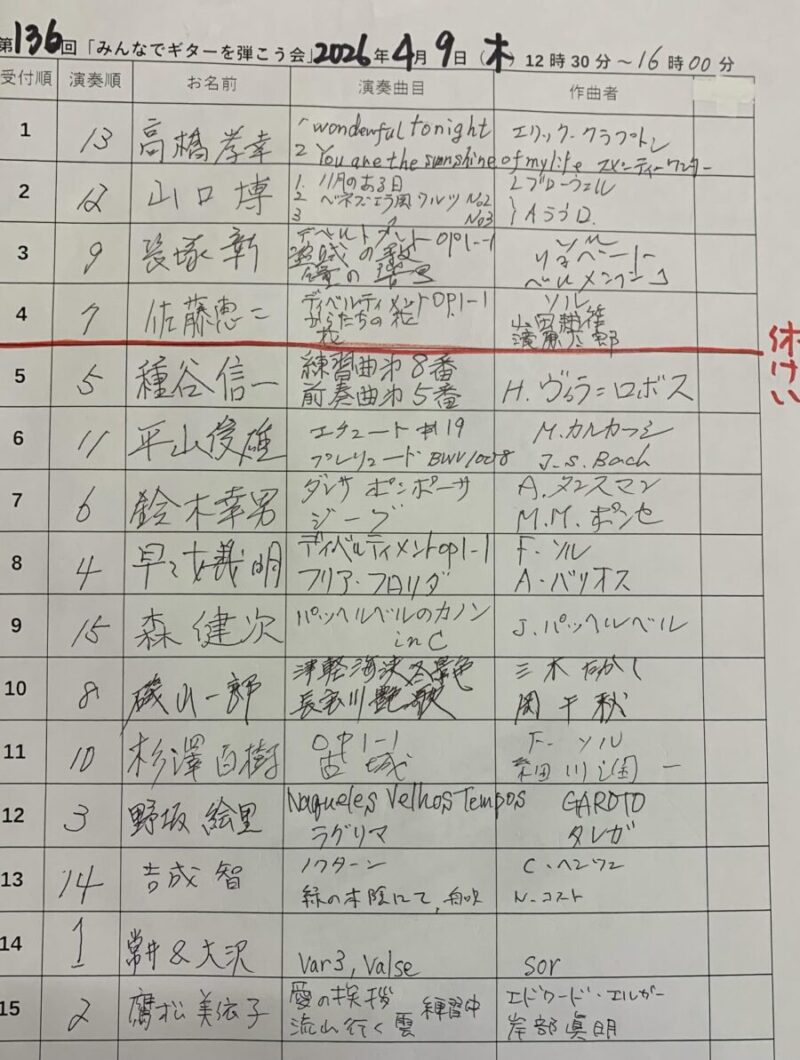 第136回「みんなでギターを弾こう会」2026年4月9日(木) 12時30分～16時00分
受付順 演奏順 お名前 演奏曲目 作曲者
1 13 高橋孝幸 1 wonderful tonight エリック・クラプトン
2 You are the sunshine of my life スティーヴィーワンダー
2 12 山口博 1. 11月のある日 L ブローウェル
2 ベネズエラ風ワルツ No2
3 No3 A ラウロ.
3 9 長塚 新 OP1-1 ソル
盗賊の歌 リョベート
4 7 佐藤恵二 ディベルティメントOP1-1 ソル
からたちの花 山田耕筰
花
休けい
5 5 種谷信一 練習曲第8番
前奏曲第5番 H. ヴィラ=ロボス
6 11 平山俊雄 エチュード #19 M. カルカッシ
プレリュード BWV1008 J. S. Bach
7 6 鈴木幸男 ダンサ ポンポーサ A. タンスマン
ジーグ M. M. ポンセ
8 4 早乙女義明 ディベルティメントop1-1 F. ソル
フリア・フロリダ A・バリオス
9 15 森 健次 パッヘルベルのカノン J. パッヘルベル
in C
10 8 磯山一郎 津軽海峡冬景色 三木たかし
長良川艶歌 岡千秋
11 10 杉澤百樹 OP1-1 F. ソル
古城
12 3 野坂 絵里 Naqueles Velhos Tempos GAROTO
ラグリマ タレガ
13 14 吉成 智 ノクターン C. ヘンツェ
緑の木陰にて, N. コスト
14 1 常井 & 大沢 Var3, Valse sor
15 2 鷹松 美依子 愛の挨拶 練習中 エドワード・エルガー
流れ行く雲 岸部眞明